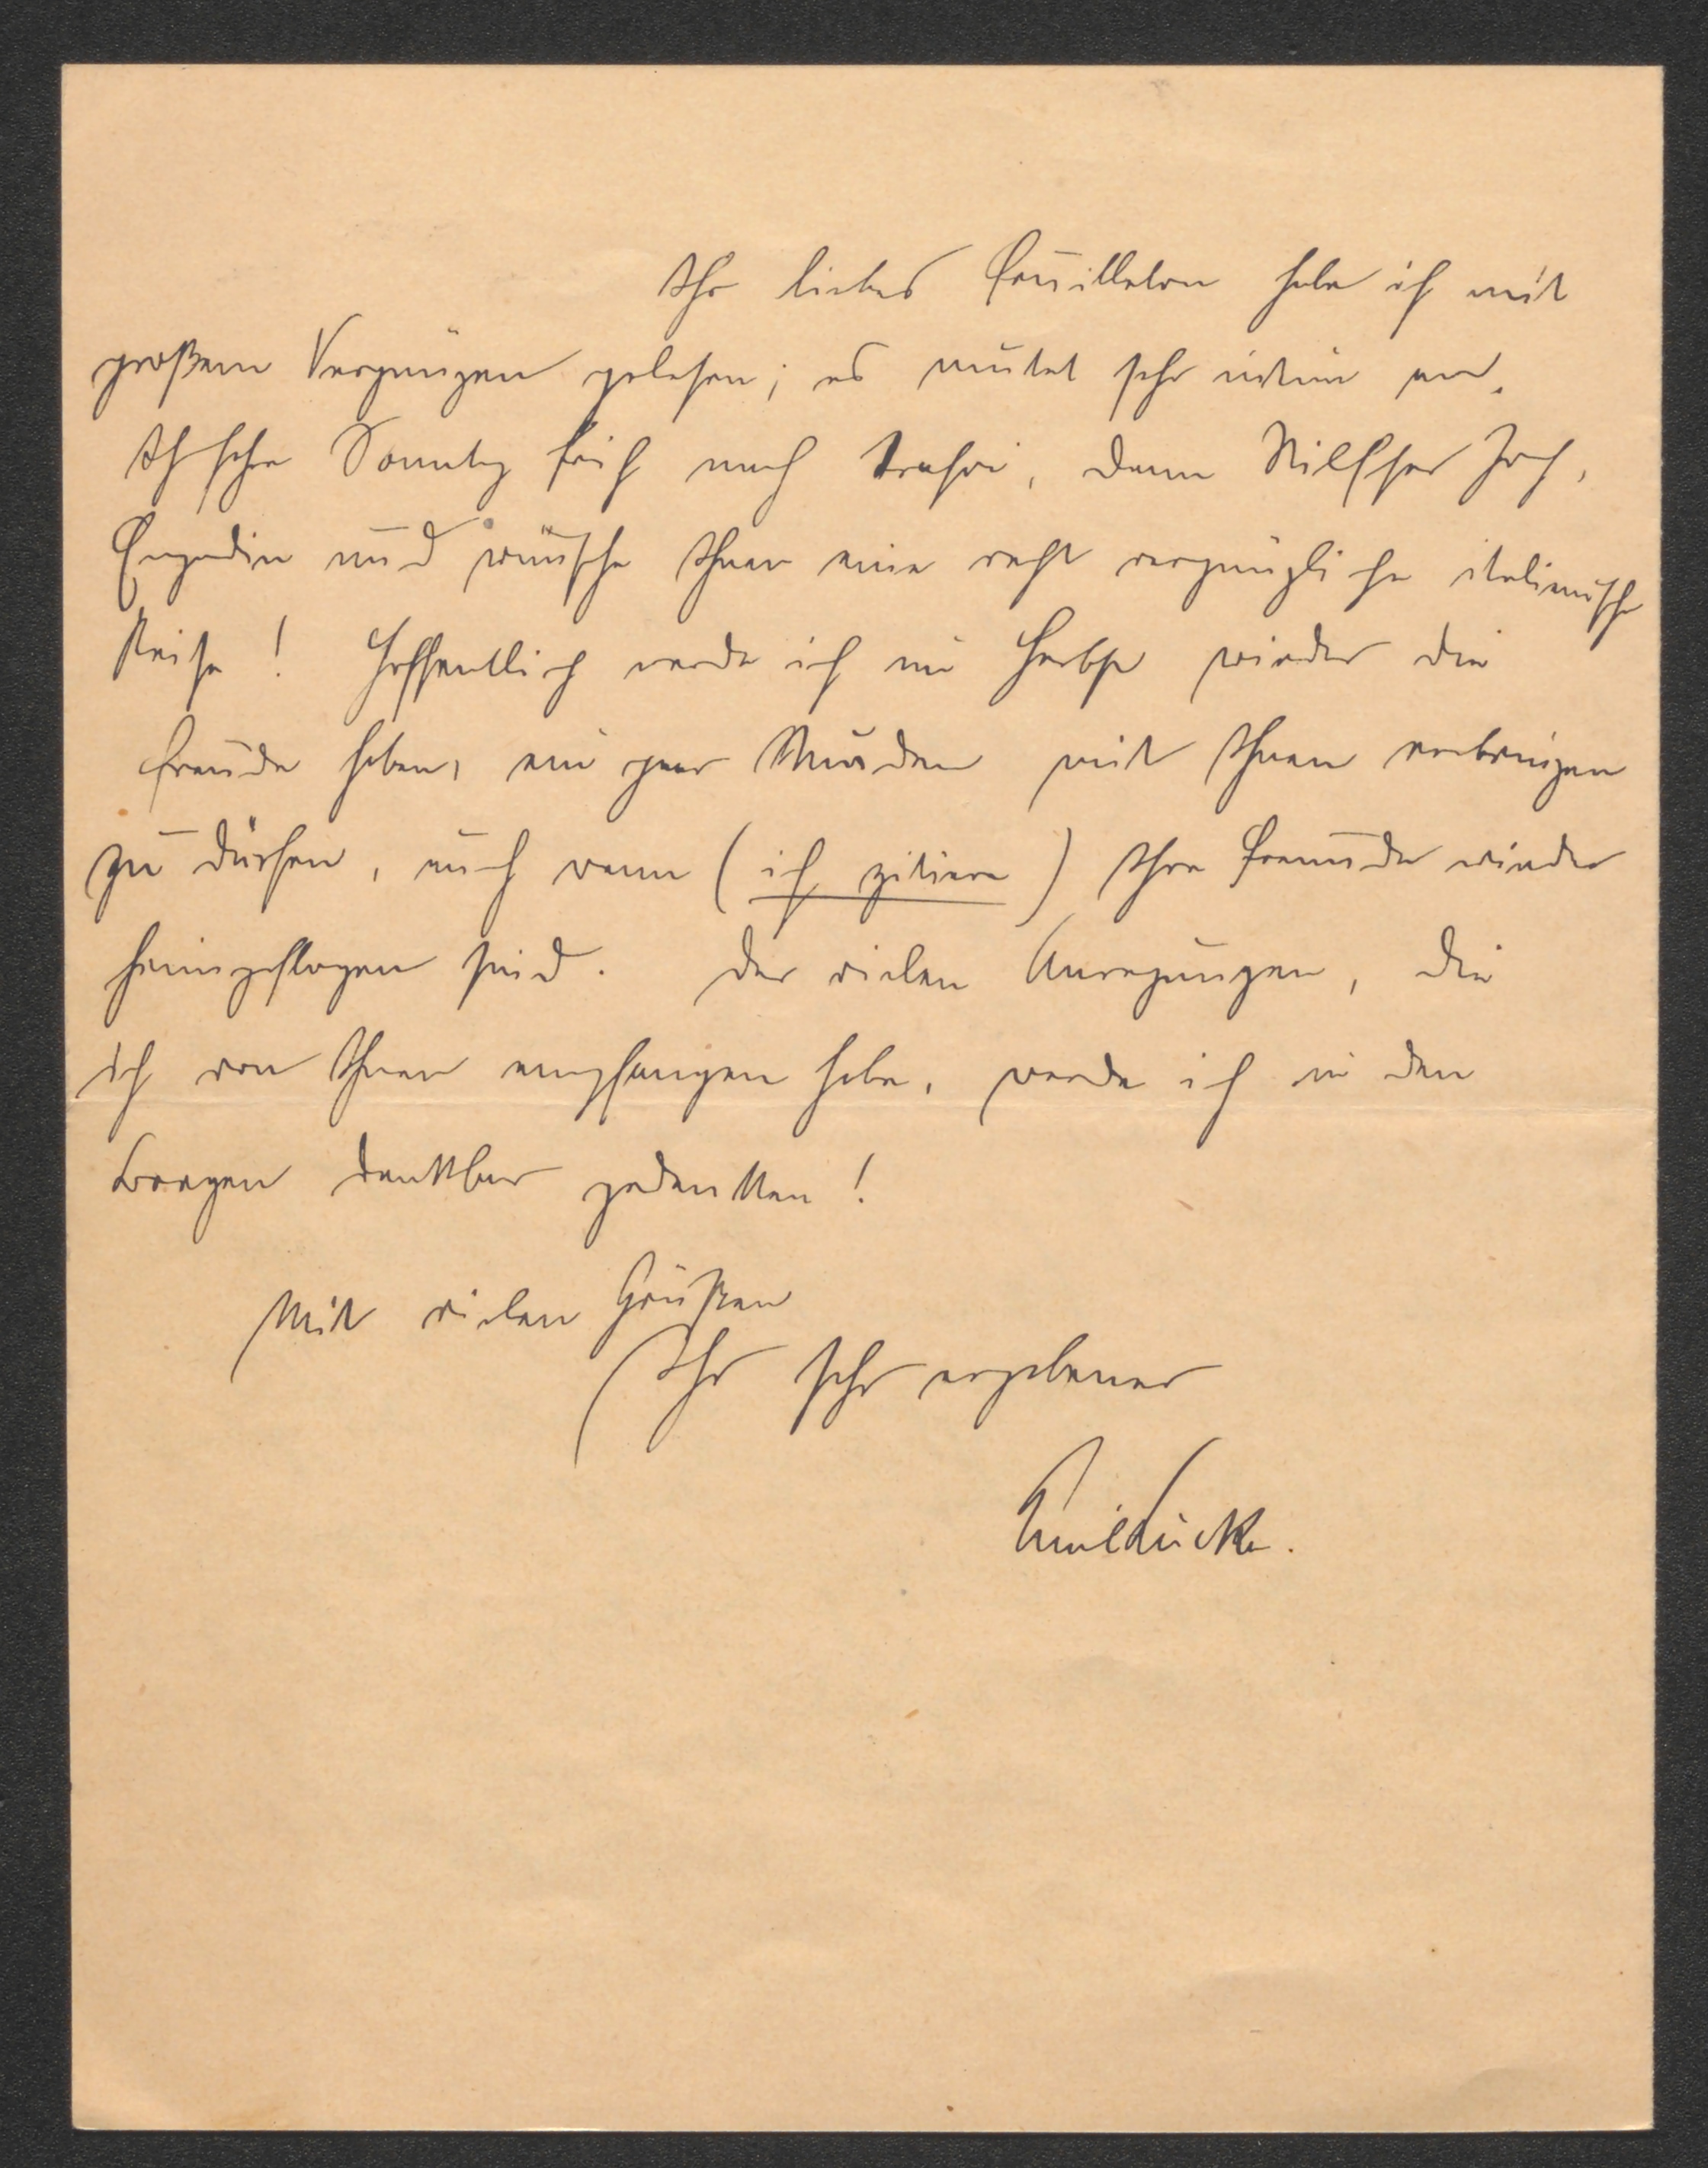 Ihr liebes Feuilleton habe ich mit
großem Vergnügen gelesen; es mutet sehr intim an.
Ich fahre Sonntag früh nach Trafoi, dann Stilfser Joch,
Engadin und wünsche Ihnen eine recht vergnügliche italienische
Reise! Hoffentlich werde ich im Herbst wieder die
Freude haben, ein paar Stunden mit Ihnen verbringen
zu dürfen, auch wenn (ich zitiere) Ihre Freunde wieder
heimgeflogen sind. Der vielen Anregungen, die
ich von Ihnen empfangen habe, werde ich in den
Bergen dankbar gedenken!
Mit vielen Grüßen
Ihr sehr ergebener
Emil Lucka.